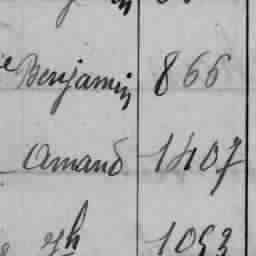 Benjamin 866
Amand 1407
Jh 1093